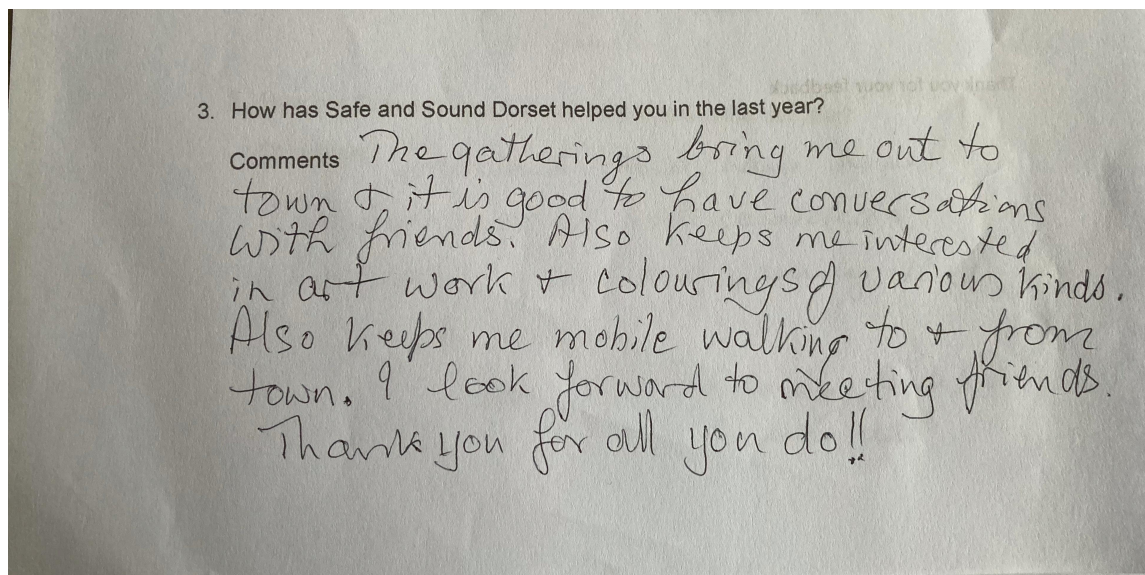 3. How has Safe and Sound Dorset helped you in the last year?
Comments The gatherings bring me out to
town & it is good to have conversations
with friends. Also keeps me interested
in art work & colourings of various kinds.
Also keeps me mobile walking to & from
town. I look forward to meeting friends.
Thank you for all you do!!